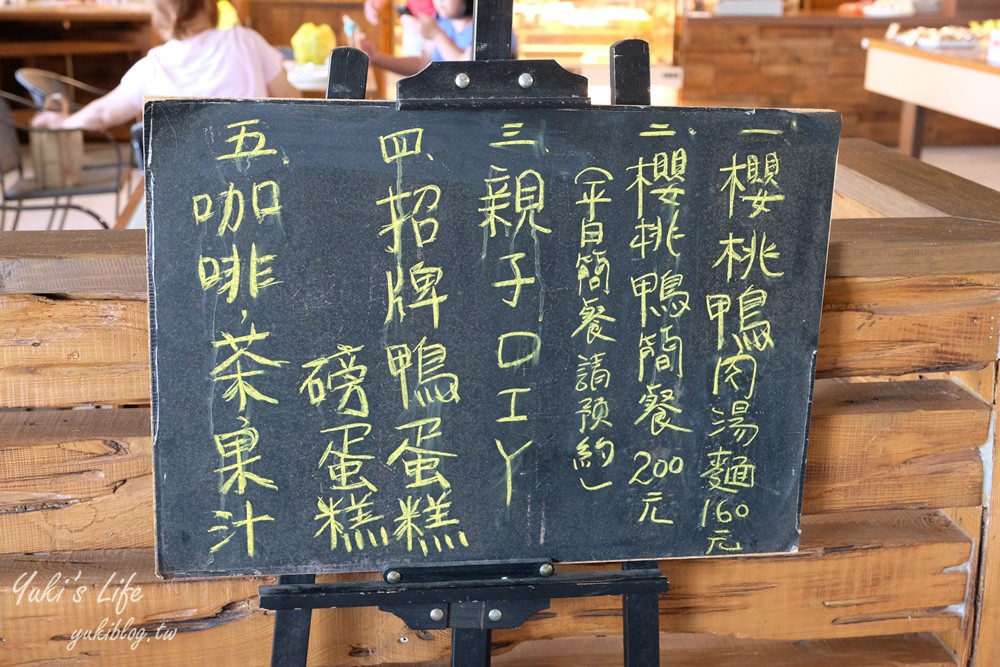 一、櫻桃鴨肉湯麵160元
二、櫻桃鴨簡餐200元
（平日簡餐請預約）
三、親子口工丫
四、招牌鴨蛋糕
磅蛋糕
五、咖啡，茶果汁
Yuki's Life
yukiblog.tw